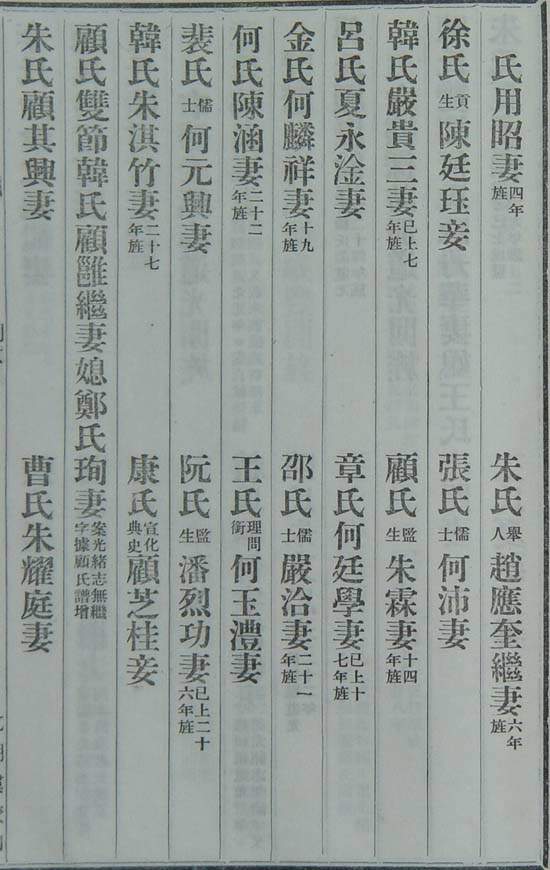 氏用昭妻四年旌 朱氏舉人趙應奎繼妻六年旌
徐氏貢生陳廷珏妾 張氏儒士何沛妻
韓氏嚴貴三妻已上七年旌 顧氏監生朱霖妻十四年旌
呂氏夏永淦妻 章氏何廷學妻已上十七年旌
金氏何麟祥妻十九年旌 邵氏儒士嚴洽妻二十一年旌
何氏陳涵妻二十二年旌 王氏理問銜何玉澧妻
裴氏儒士何元興妻 阮氏監生潘烈功妻已上二十六年旌
韓氏朱淇竹妻二十七年旌 康氏宣化典史顧芝桂妾
顧氏雙節韓氏顧雝繼妻媳鄭氏珣妻案光緒志無繼字據顧氏譜增
朱氏顧其興妻 曹氏朱耀庭妻